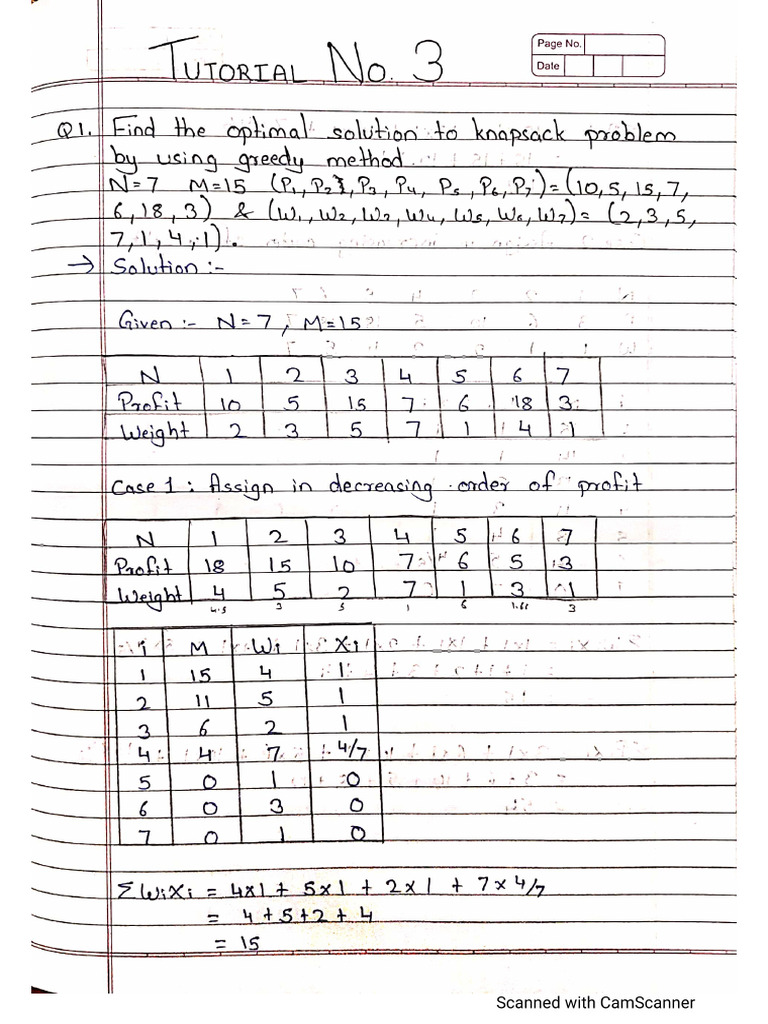 TUTORIAL NO. 3
Page No.
Date
Q1. Find the optimal solution to knapsack problem
by using greedy method
N=7 M=15 (P1, P2, P3, P4, P5, P6, P7) = (10, 5, 15, 7,
6, 18, 3) & (W1, W2, W3, W4, W5, W6, W7) = (2, 3, 5,
7, 1, 4, 1).
→ Solution :-
Given :- N=7, M=15
N 1 2 3 4 5 6 7
Profit 10 5 15 7 6 18 3
Weight 2 3 5 7 1 4 1
Case 1 : Assign in decreasing order of profit
N 1 2 3 4 5 6 7
Profit 18 15 10 7 6 5 3
Weight 4 5 2 7 1 3 1
4.5 3 5 1 6 1.66 3
i M Wi Xi
1 15 4 1
2 11 5 1
3 6 2 1
4 4 7 4/7
5 0 1 0
6 0 3 0
7 0 1 0
ΣWiXi = 4x1 + 5x1 + 2x1 + 7x4/7
= 4+5+2+4
= 15
Scanned with CamScanner